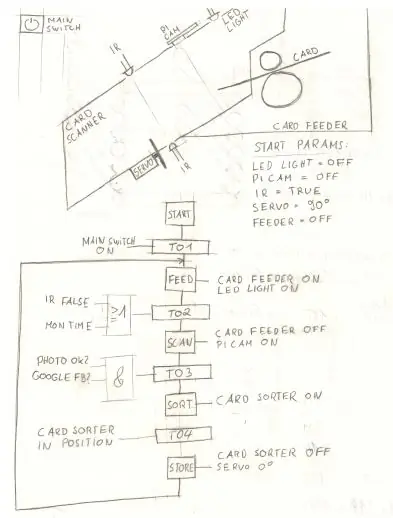 MAIN
SWITCH
PI
CAM
LED
LIGHT
IR
CARD
CARD
SCANNER
SERVO
IR
CARD FEEDER
START PARAMS:
LED LIGHT = OFF
PI CAM = OFF
IR = TRUE
SERVO = 90°
FEEDER = OFF
START
MAIN SWITCH
ON
T01
FEED
CARD FEEDER ON
LED LIGHT ON
IR FALSE
MON TIME
>1
=
T02
SCAN
CARD FEEDER OFF
PI CAM ON
PHOTO OK?
GOOGLE FB?
&
T03
SORT
CARD SORTER ON
CARD SORTER
IN POSITION
T04
STORE
CARD SORTER OFF
SERVO 0°